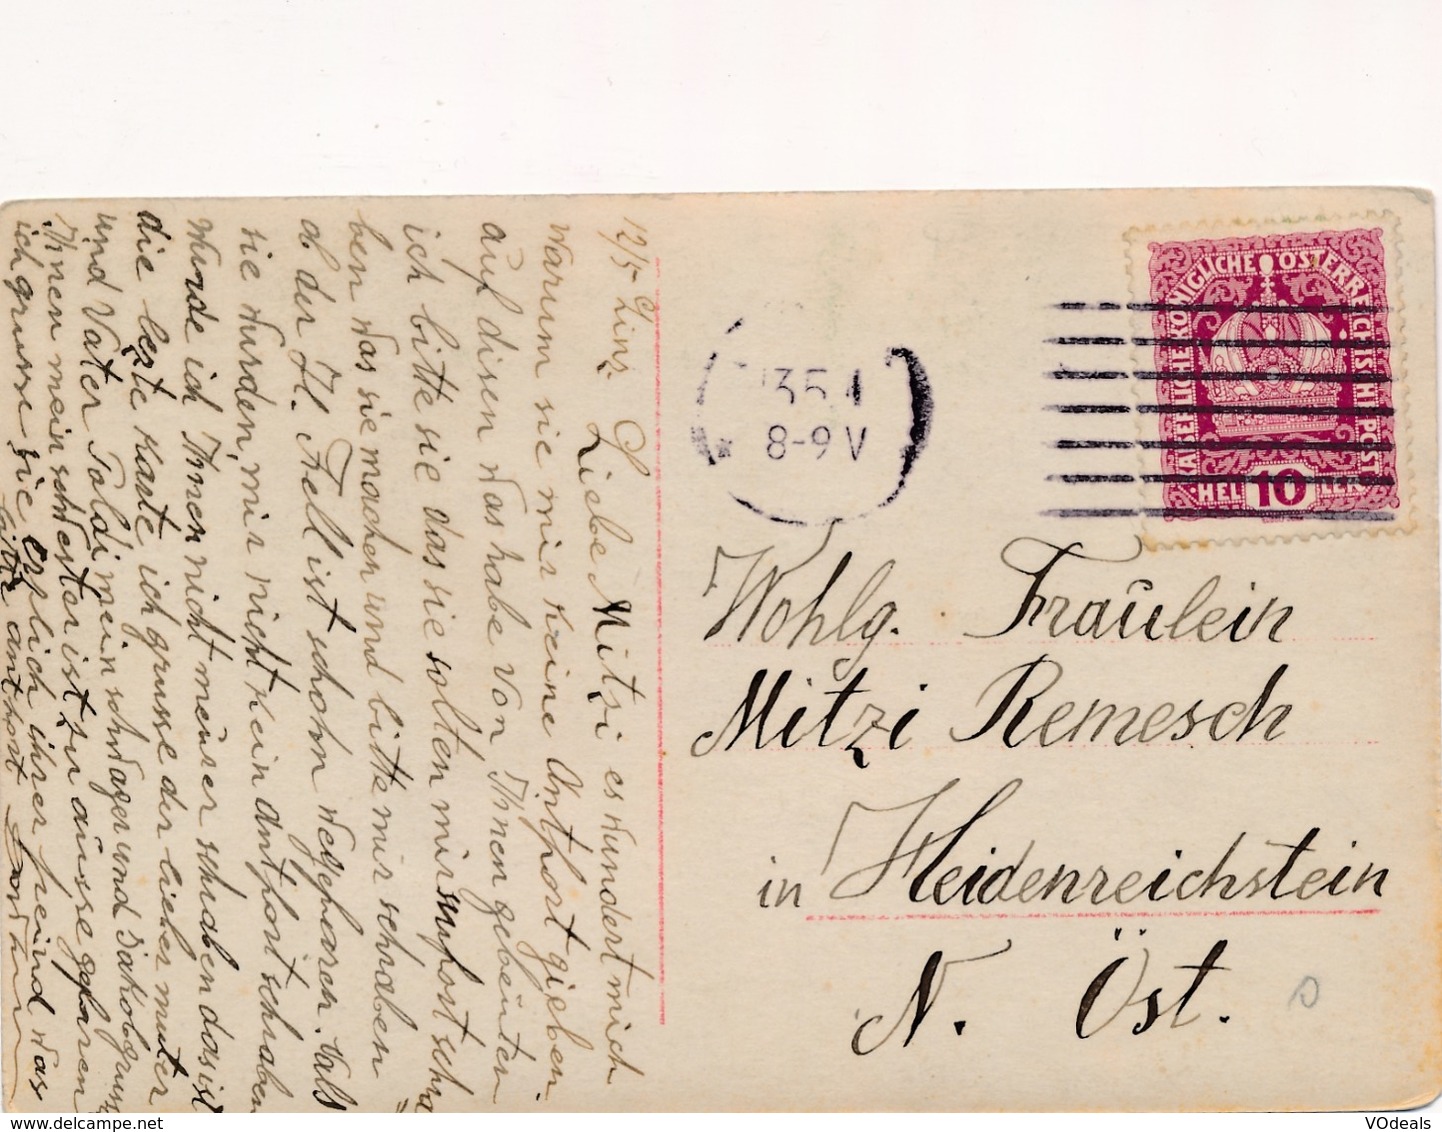 12/5 Linz
Liebe Mitzi es wundert mich
warum sie mir keine Antfort gieben.
auf disen was habe von Ihnen gebeüten
ich bitte sie das sie solten mir sufort schra=
ben was sie machen und bitte mir schraben
ob der H. Fell ist schohn wegfharen. Vals
sie wurden mir nicht kein antfort schraben
wurde ich Ihnen nicht meürer schraben das ist
die lezte karte ich grusse der lieber muter
und Vater Poldi mein schwager und
Ihnen mein schwester ist zu aüsse gefaren
ich grusse sie erflich ihrer freind was
bitte antfort
KAISERLICHE KÖNIGLICHE ÖSTERREICHISCHE POST
10
HELLER
13 5 1
8-9 V
Wohlg. Fräulein
Mitzi Remesch
in Heidenreichstein
N. Öst.
VOdeals